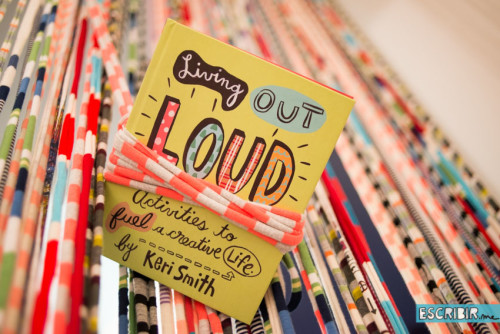 Living
OUT
LOUD
Activities to
fuel a creative Life
by Keri Smith
ESCRIBIR.me